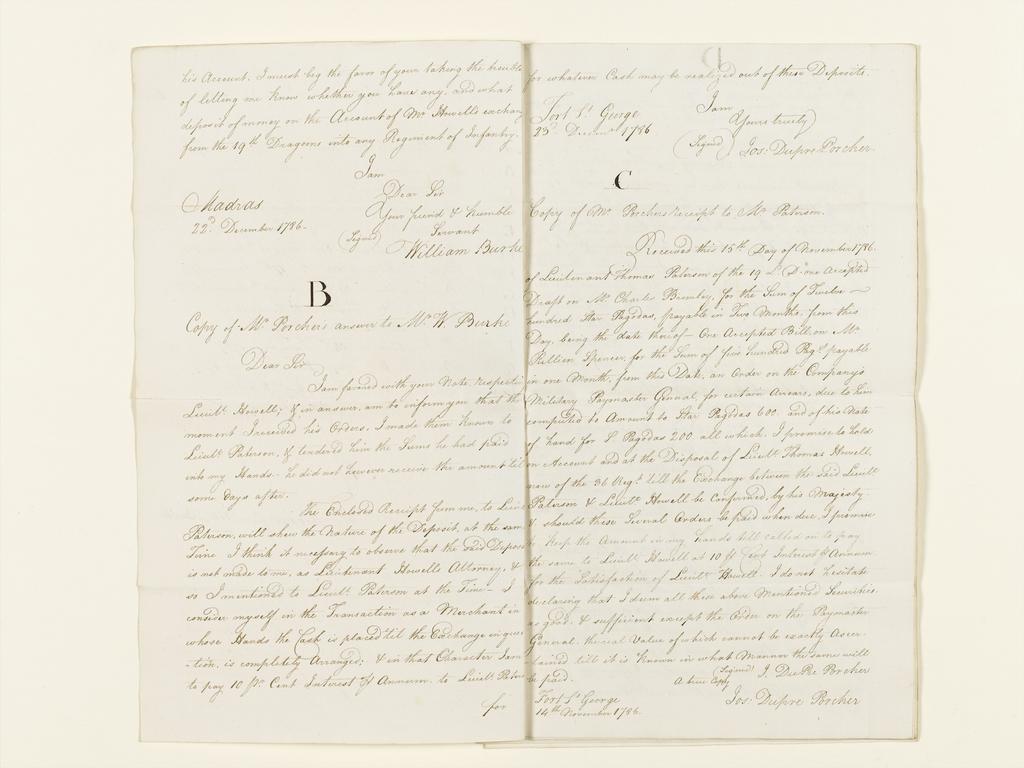 his Account. I must beg the favor of your taking the trouble
of letting me know whether you have any, and what
deposit of money on the Account of Mr Howell's exchan
from the 19th Dragoons into any Regiment of Infantry.
I am
Dear Sir
Your friend & humble
Servant
(Signed)
William Burke
Madras
22d December 1786.
B
Copy of Mr Porcher's answer to Mr W. Burke
Dear Sir
I am favored with your Note, respecti
Lieut. Howell; & in answer, am to inform you that the
moment I received his Orders, I made them known to
Lieut. Paterson, & tendered him the Sums he had paid
into my Hands - he did not however receive the amount til
some days after.
The Enclosed Receipt from me, to Lieu
Paterson, will shew the Nature of the Deposit, at the sam
Time I think it necessary to observe that the said Depos
is not made to me, as Lieutenant Howell's Attorney, &
so I mentioned to Lieut. Paterson at the Time - I
consider myself in the Transaction as a Merchant in
whose Hands the Cash is placed till the Exchange in ques
-tion, is completely Arranged; & in that Character I am
to pay 10 pr. Cent Interest pr Annum. to Lieut. Pater
for
for whatever Cash may be realized out of these Deposits.
I am
Yours truely
Fort St George
23d Decemr 1786
(Signed) Jos: Dupre Porcher.
C
Copy of Mr Porcher's receipt to Mr Paterson.
Received this 15th Day of November 1786.
of Lieutenant Thomas Paterson of the 19 Lt. D. one Accepted
Draft on Mr Charles Bromley, for the Sum of Twelve
hundred Star Pagodas, payable in Two Months, from this
Day, being the date thereof - One Accepted Bill, on Mr
Spencer, for the Sum of five hundred Pags. payable
in one Month, from this Date, an Order on the Company's
Military Paymaster General, for certain Arrears, due to him
computed to Amount to Star Pagodas 600. and of his Note
of hand for S. Pagodas 200 all which, I promise to hold
on Account and at the Disposal of Lieut. Thomas Howell,
now of the 36 Regt. till the Exchange between the said Lieut
Paterson & Lieut. Howell be Confirmed, by his Majesty
& should these Several Orders be paid when due, I promise
to keep the Amount in my Hands till called on to pay
the same to Lieut. Howell at 10 pr Cent Interest pr Annum.
for the Satisfaction of Lieut. Howell. I do not hesitate
declaring that I deem all these above Mentioned Securities
as good & sufficient except the Order on the Paymaster
General, the real Value of which cannot be exactly Ascer
-tained till it is Known in what Manner the same will
be paid.
(Signed) J. DuPre Porcher
A true Copy
Jos: Dupre Porcher
Fort St George
14th November 1786.